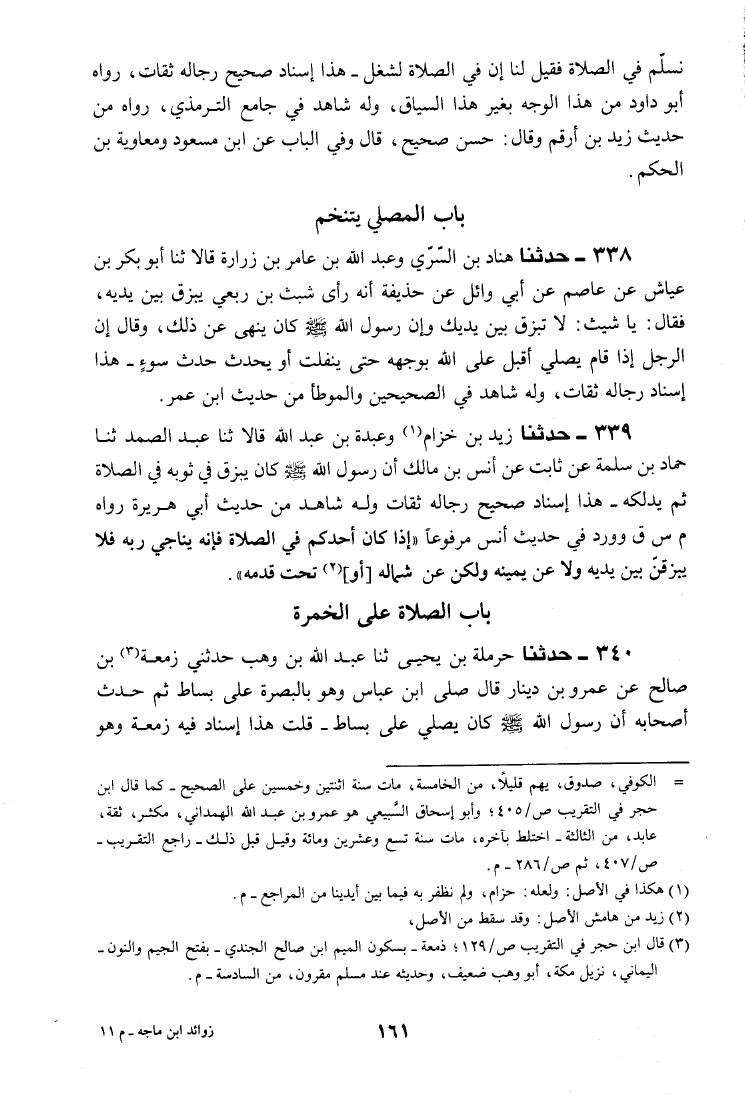 نسلّم في الصلاة فقيل لنا إن في الصلاة لشغل ـ هذا إسناد صحيح رجاله ثقات، رواه
أبو داود من هذا الوجه بغير هذا السياق، وله شاهد في جامع الترمذي، رواه من
حديث زيد بن أرقم وقال: حسن صحيح، قال وفي الباب عن ابن مسعود ومعاوية بن
الحكم.
باب المصلي يتنخم
٣٣٨ ـ حدثنا هناد بن السّرّي وعبد الله بن عامر بن زرارة قالا ثنا أبو بكر بن
عياش عن عاصم عن أبي وائل عن حذيفة أنه رأى شبث بن ربعي يبزق بين يديه،
فقال: يا شيث: لا تبزق بين يديك وإن رسول الله ﷺ كان ينهى عن ذلك، وقال إن
الرجل إذا قام يصلي أقبل على الله بوجهه حتى ينفلت أو يحدث حدث سوءٍ ـ هذا
إسناد رجاله ثقات، وله شاهد في الصحيحين والموطأ من حديث ابن عمر.
٣٣٩ ـ حدثنا زيد بن خزام(١) وعبدة بن عبد الله قالا ثنا عبد الصمد ثنا
حماد بن سلمة عن ثابت عن أنس بن مالك أن رسول الله ﷺ كان يبزق في ثوبه في الصلاة
ثم يدلكه ـ هذا إسناد صحيح رجاله ثقات وله شاهد من حديث أبي هريرة رواه
م س ق وورد في حديث أنس مرفوعاً «إذا كان أحدكم في الصلاة فإنه يناجي ربه فلا
يبزقنّ بين يديه ولا عن يمينه ولكن عن شماله [أو](٢) تحت قدمه».
باب الصلاة على الخمرة
٣٤٠ ـ حدثنا حرملة بن يحيى ثنا عبد الله بن وهب حدثني زمعة(٣) بن
صالح عن عمرو بن دينار قال صلى ابن عباس وهو بالبصرة على بساط ثم حدث
أصحابه أن رسول الله ﷺ كان يصلي على بساط ـ قلت هذا إسناد فيه زمعة وهو
= الكوفي، صدوق، يهم قليلًا، من الخامسة، مات سنة اثنتين وخمسين على الصحيح ـ كما قال ابن
حجر في التقريب ص/٤٠٥؛ وأبو إسحاق السَّبيعي هو عمرو بن عبد الله الهمداني، مكثر، ثقة،
عابد، من الثالثة ـ اختلط بآخره، مات سنة تسع وعشرين ومائة وقيل قبل ذلك ـ راجع التقريب ـ
ص/٤٠٧، ثم ص/٢٨٦ ـ م.
(١) هكذا في الأصل: ولعله: حزام، ولم نظفر به فيما بين أيدينا من المراجع ـ م.
(٢) زيد من هامش الأصل: وقد سقط من الأصل،
(٣) قال ابن حجر في التقريب ص/١٢٩؛ ذمعة ـ بسكون الميم ابن صالح الجندي ـ بفتح الجيم والنون ـ
اليماني، نزيل مكة، أبو وهب ضعيف، وحديثه عند مسلم مقرون، من السادسة ـ م.
١٦١
زوائد ابن ماجه ـ م ١١